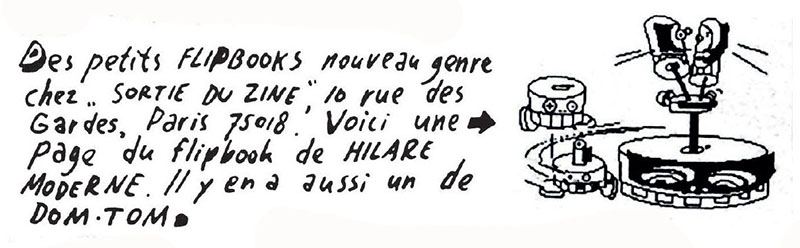 Des petits FLIPBOOKS nouveau genre
chez „SORTIE DU ZINE", 10 rue des
Gardes, Paris 75018. Voici une ➡
page du flipbook de HILARE
MODERNE. Il y en a aussi un de
DOM.TOM.